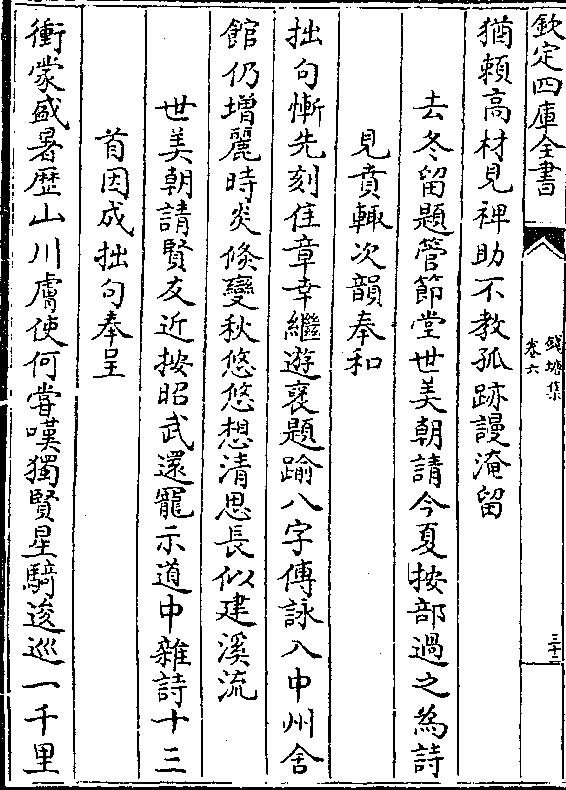 欽定四庫全書
錢塘集
卷六
三十二
猶頼高材見裨助不教孤跡謾淹留
去冬留題管節堂世美朝請今夏按部過之為詩
見賁輙次韻奉和
拙句慚先刻佳章幸繼遊襃題踰八字傳詠入中州舍
館仍增麗時炎倏變秋悠悠想清思長似建溪流
世美朝請賢友近按昭武還寵示道中雜詩十三
首因成拙句奉呈
衝蒙盛暑歴山川膚使何嘗嘆獨賢星騎逡巡一千里